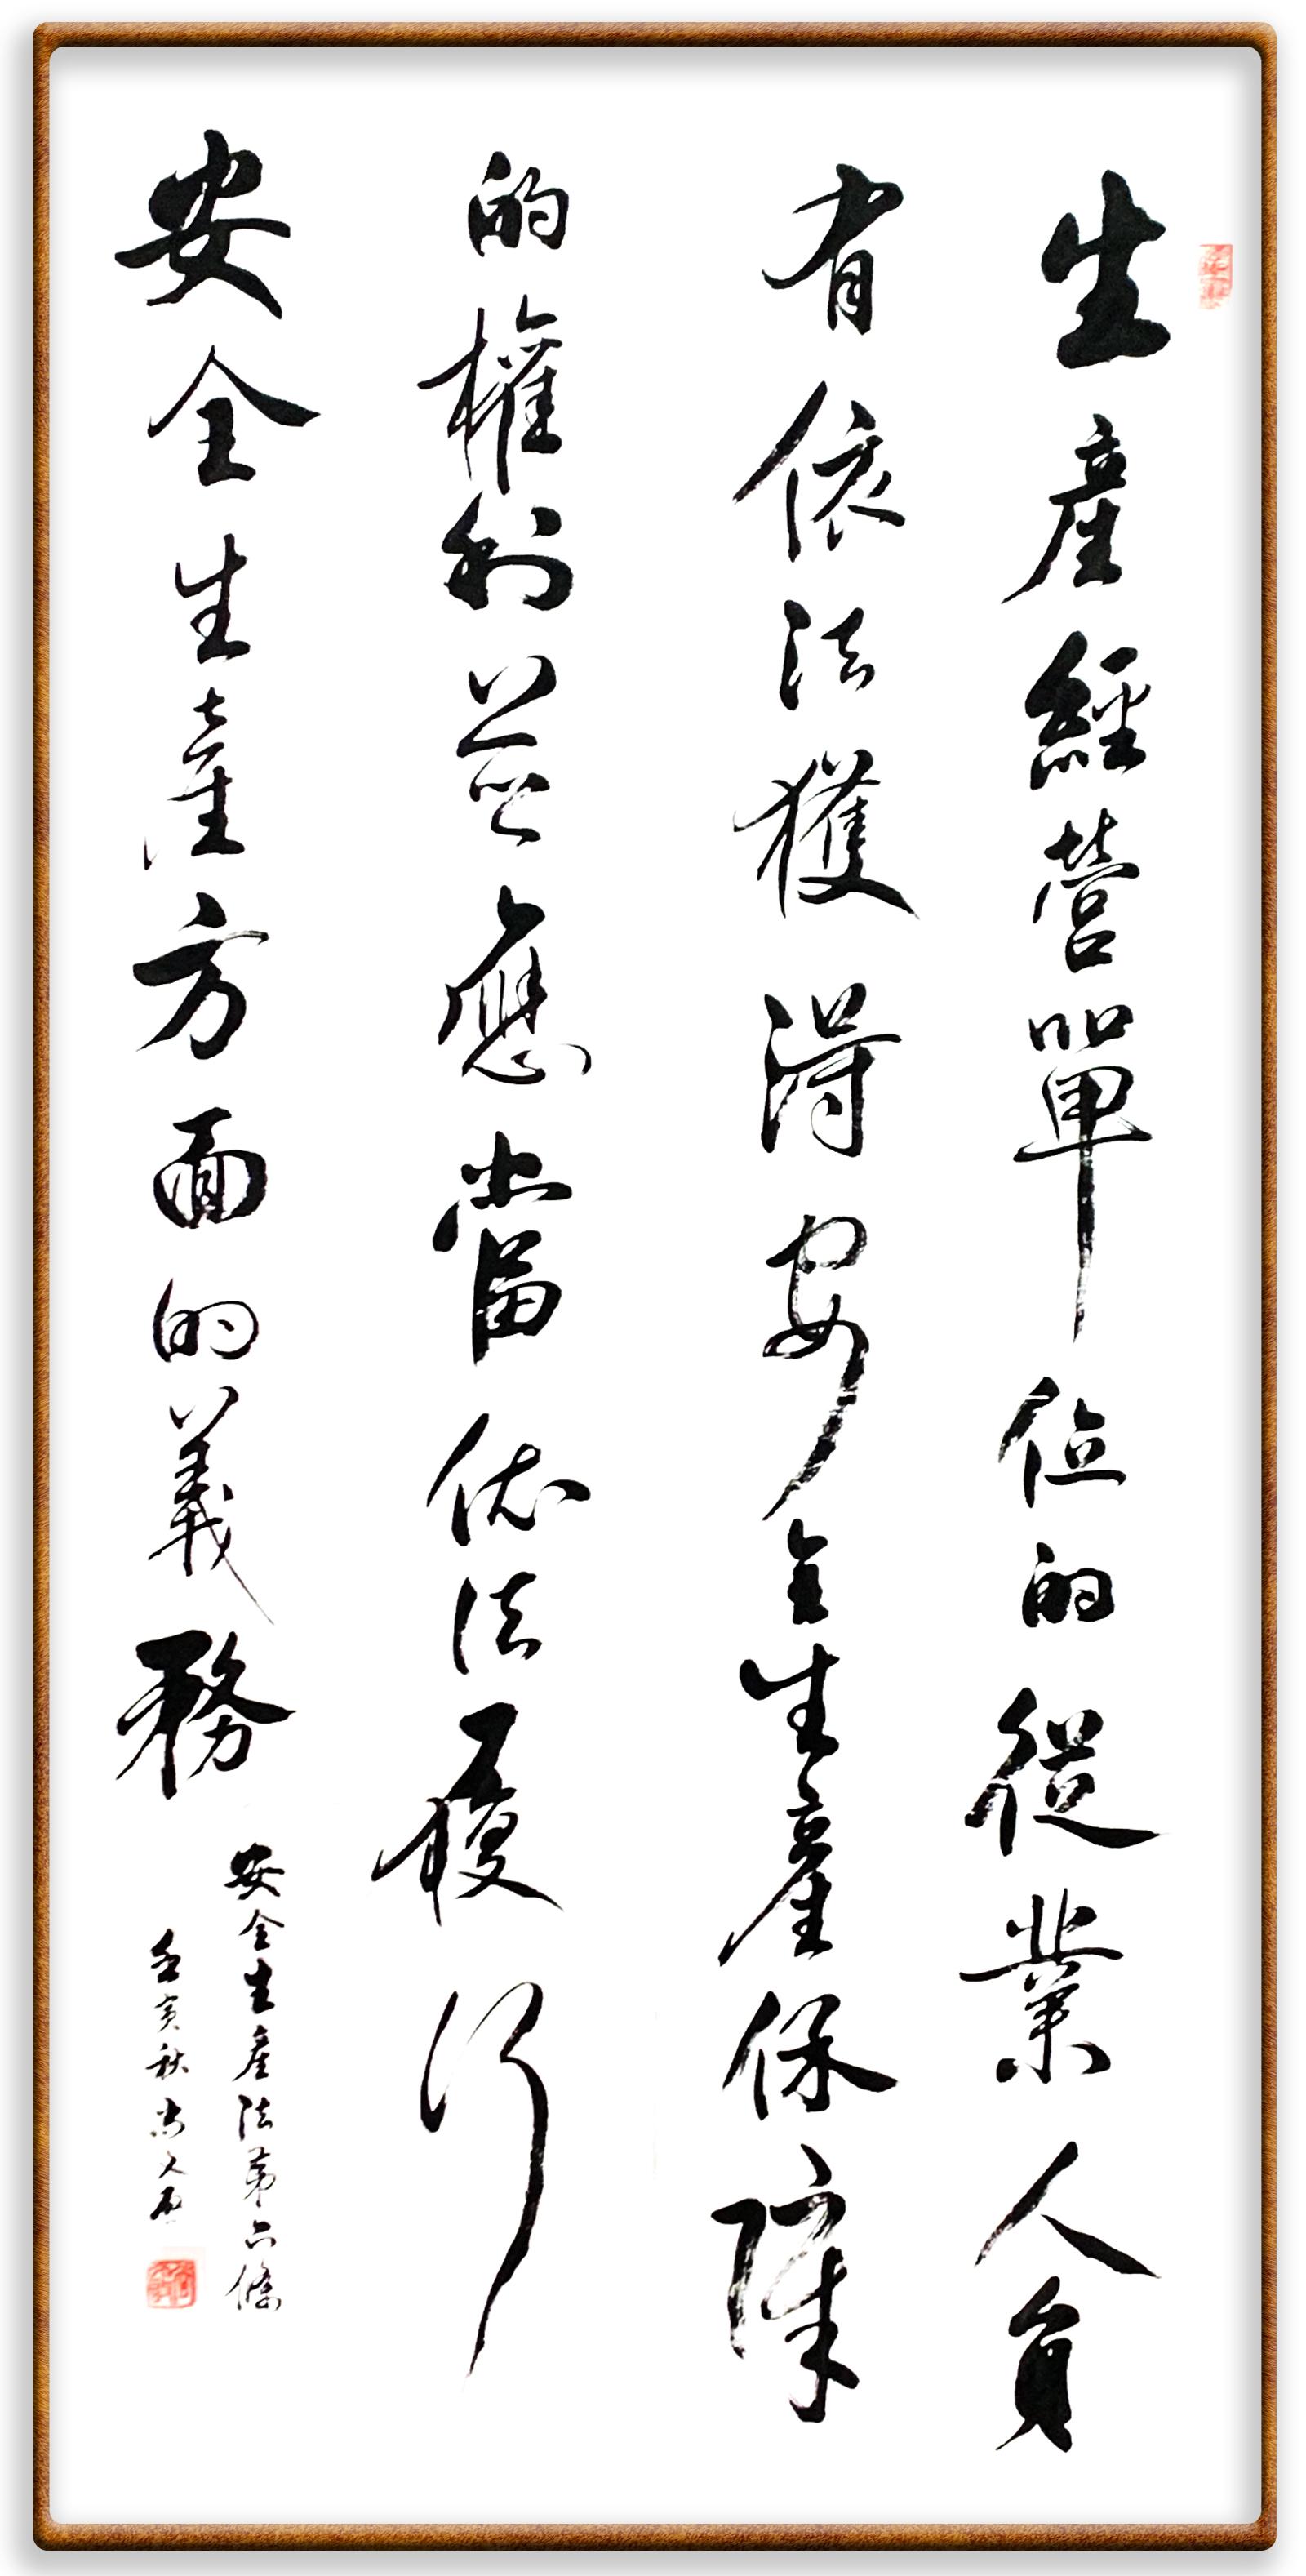 生產經營單位的從業人員
有依法獲得安全生產保障
的權利並應當依法履行
安全生產方面的義務
安全生產法第六條
壬寅秋尚文